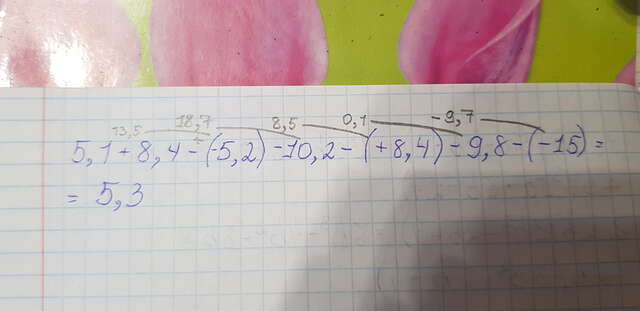 13,5 18,7 8,5 0,1 -9,7
5,1+8,4-(-5,2)-10,2-(+8,4)-9,8-(-15)=
=5,3